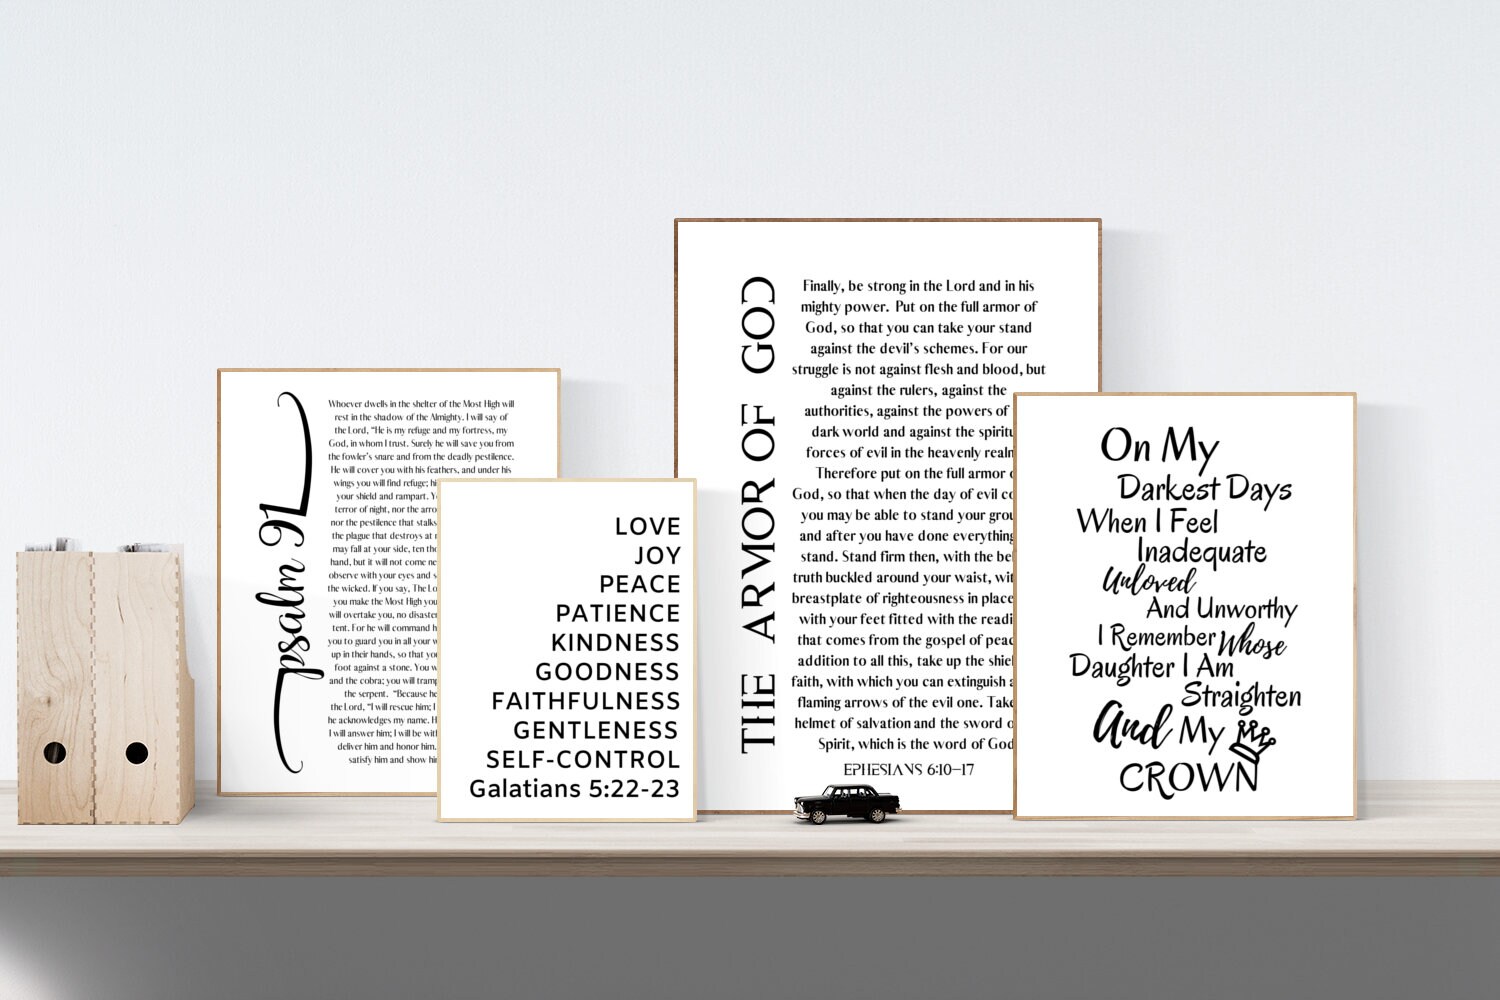 psalm 91
Whoever dwells in the shelter of the Most High will
rest in the shadow of the Almighty. I will say of
the Lord, “He is my refuge and my fortress, my
God, in whom I trust. Surely he will save you from
the fowler’s snare and from the deadly pestilence.
He will cover you with his feathers, and under his
wings you will find refuge;
your shield and rampart.
terror of night, nor the
nor the pestilence that stalks
the plague that destroys at
may fall at your side, ten
hand, but it will not come
observe with your eyes and
the wicked. If you say, The
you make the Most High
will overtake you, no
tent. For he will command
you to guard you in all your
up in their hands, so that
foot against a stone. You
and the cobra; you will
the serpent. “Because he
the Lord, “I will rescue him;
he acknowledges my name.
I will answer him; I will be
deliver him and honor him.
satisfy him and show
LOVE
JOY
PEACE
PATIENCE
KINDNESS
GOODNESS
FAITHFULNESS
GENTLENESS
SELF-CONTROL
Galatians 5:22-23
THE ARMOR OF GOD
Finally, be strong in the Lord and in his
mighty power. Put on the full armor of
God, so that you can take your stand
against the devil’s schemes. For our
struggle is not against flesh and blood, but
against the rulers, against the
authorities, against the powers of
dark world and against the
forces of evil in the heavenly
Therefore put on the full armor
God, so that when the day of evil
you may be able to stand your
and after you have done everything
stand. Stand firm then, with the
truth buckled around your waist,
breastplate of righteousness in place
with your feet fitted with the
that comes from the gospel of
addition to all this, take up the
faith, with which you can extinguish
flaming arrows of the evil one. Take
helmet of salvation and the sword
Spirit, which is the word of God
EPHESIANS 6:10-17
On My
Darkest Days
When I Feel
Inadequate
Unloved
And Unworthy
I Remember Whose
Daughter I Am
Straighten
And My
CROWN